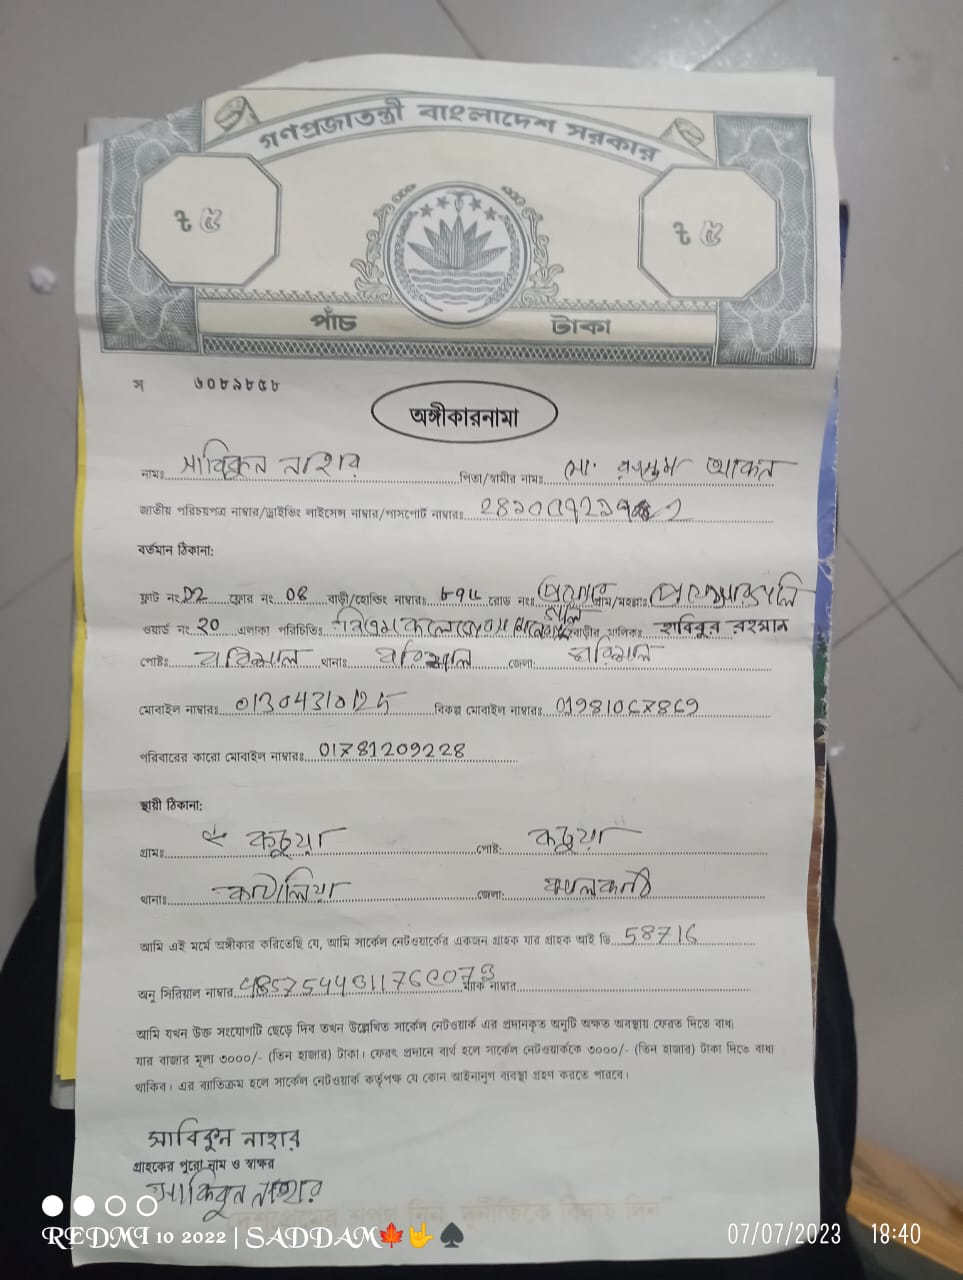 গণপ্রজাতন্ত্রী বাংলাদেশ সরকার
৳ ৫ ৳ ৫
পাঁচ টাকা
স ৬০৮৯৮৫৮
অঙ্গীকারনামা
নামঃ সাবিকুন নাহার পিতা/স্বামীর নামঃ মো. রুস্তুম আকন
জাতীয় পরিচয়পত্র নাম্বার/ড্রাইভিং লাইসেন্স নাম্বার/পাসপোর্ট নাম্বারঃ
বর্তমান ঠিকানা:
ফ্লাট নং D2 ফ্লোর নং 08 বাড়ী/হোল্ডিং নাম্বারঃ ৮৭৫ রোড নংঃ গ্রাম/মহল্লাঃ
ওয়ার্ড নং 20 এলাকা পরিচিতিঃ বাড়ীর মালিকঃ হাবিবুর রহমান
পোষ্টঃ বরিশাল থানাঃ বরিশাল জেলা: বরিশাল
মোবাইল নাম্বারঃ 01304310125 বিকল্প মোবাইল নাম্বারঃ 01981067869
পরিবারের কারো মোবাইল নাম্বারঃ 01781209228
স্থায়ী ঠিকানা:
গ্রামঃ কচুয়া পোষ্ট: কচুয়া
থানাঃ কাঠালিয়া জেলা: ঝালকাঠী
আমি এই মর্মে অঙ্গীকার করিতেছি যে, আমি সার্কেল নেটওয়ার্কের একজন গ্রাহক যার গ্রাহক আই ডি 58716
অনু সিরিয়াল নাম্বার ম্যাক নাম্বার
আমি যখন উক্ত সংযোগটি ছেড়ে দিব তখন উল্লেখিত সার্কেল নেটওয়ার্ক এর প্রদানকৃত অনুটি অক্ষত অবস্থায় ফেরত দিতে বাধ্য
যার বাজার মূল্য ৩০০০/- (তিন হাজার) টাকা। ফেরৎ প্রদানে ব্যর্থ হলে সার্কেল নেটওয়ার্ককে ৩০০০/- (তিন হাজার) টাকা দিতে বাধ্য
থাকিব। এর ব্যতিক্রম হলে সার্কেল নেটওয়ার্ক কর্তৃপক্ষ যে কোন আইনানুগ ব্যবস্থা গ্রহণ করতে পারবে।
সাবিকুন নাহার
গ্রাহকের পুরো নাম ও স্বাক্ষর
সাবিকুন নাহার
"দেশপ্রেমের শপথ নিন, দুর্নীতিকে বিদায় দিন"
REDMI 10 2022 | SADDAM🍁🤟♠
07/07/2023 18:40